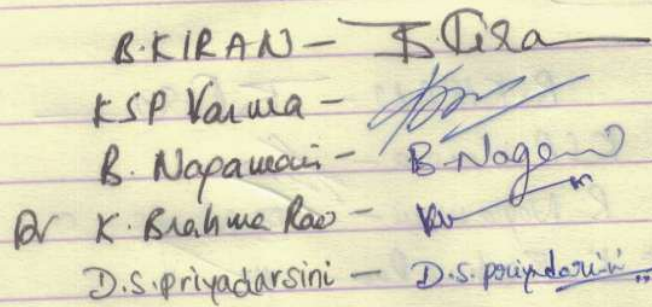 B. KIRAN - B. Kira
KSP Varma -
B. Nagamani - B. Nage
Dr K. Brahma Rao -
D.S. priyadarsini - D.S. priyadarsini